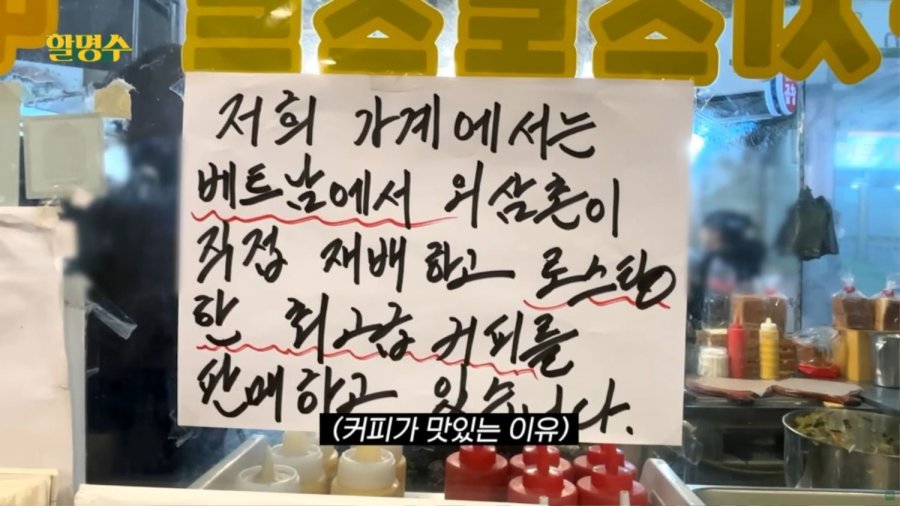 할명수
저희 가계에서는
베트남에서 외삼촌이
직접 재배하고 로스팅
한 최고급 커피를
판매하고 있습니다.
(커피가 맛있는 이유)